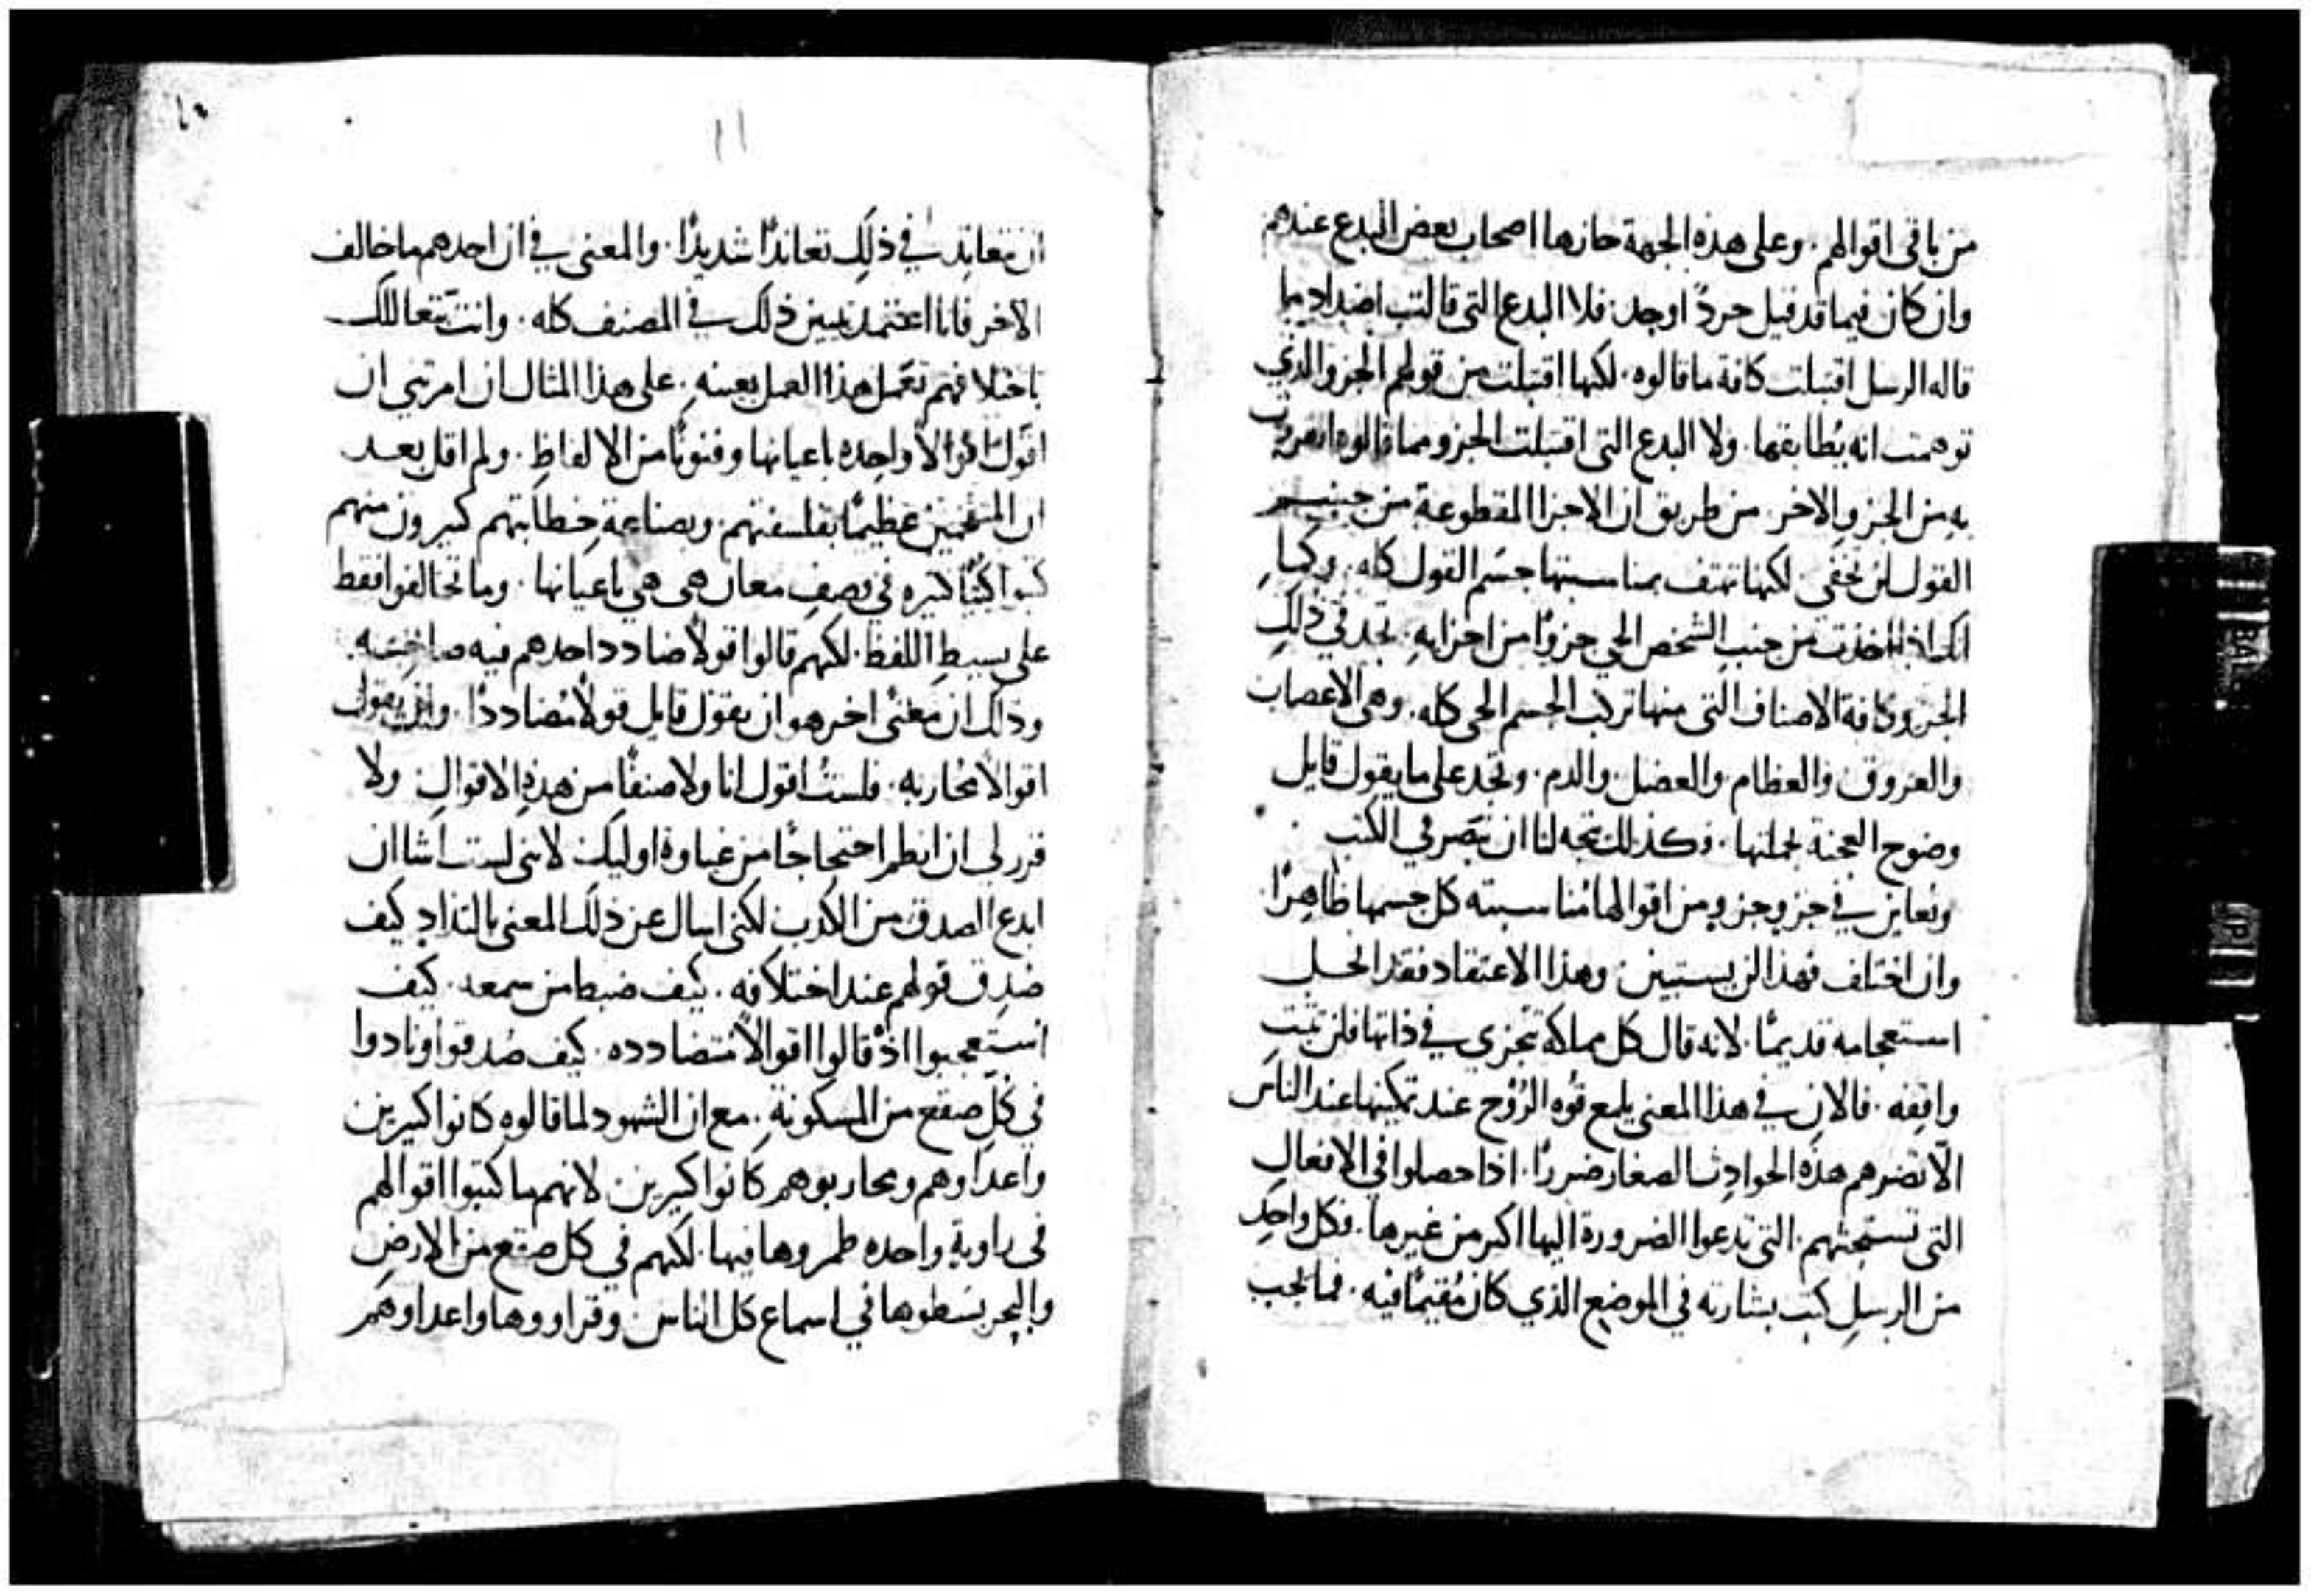 من باقي اقوالهم. وعلى هذه الجهة حازها اصحاب بعض البدع عندهم
وان كان فيما قد قيل حردً اوجد. فلا البدع التي قالت اضداد ما
قاله الرسل اقتبلت كافة ما قالوه. لكنها اقتبلت من قولهم الجزو الذي
توهمت انه يُطابقها. ولا البدع التي اقتبلت الجزو مما قالوه انفردت
به من الجزو الاخر. من طريق ان الاجزا المقطوعة من جسم
القول لن تخفى. لكنها تهتف بمناسبتها جسم القول كله. وكما
انك اذا اخذت من جنب الشخص الحي جزوًا من اجزايه. تجد في ذلك
الجزو كافة الاصناف التي منها تركب الجسم الحي كله. وهي الاعصاب
والعروق. والعظام. والعضل. والدم. وتجد على ما يقول قايل
وضوح العجنة بجملتها. وكذلك يتجه لنا ان نتبصر في الكتب
ونعاين في جزو جزو من اقوالها مُناسبته كل جسمها ظاهرًا.
وان اختلف فهذا لن يستبين. وهذا الاعتقاد فقد انحل
استعجامه قديمًا. لانه قال كل مملكة تجزى في ذاتها فلن تثبت
واقفه. فالان في هذا المعنى يلمع قوه الرُوح عند تمكينها عند الناس
الّا تضرهم هذه الحوادث الصغار ضررًا. اذا حصلوا في الافعال
التي تستحثهم. التي تدعوا الضرورة اليها اكبر من غيرها. فكل واحد
من الرسل كتب بشارته في الموضع الذي كان مُقيمًا فيه. فما يجب
١١
ان تعاند في ذلك تعاندًا شديدًا. والمعنى في ان احدهم ما خالف
الاخر فانا اعتمد تبيين ذلك في المصنف كله. وانت تتعاللك
باختلافهم تعمل هذا العمل بعينه. على هذا المثال ان امرتني ان
اقول اقوالًا واحده باعيانها وفنونًا من الالفاظ. ولم اقل بعد
ان المتفخمين عظيمًا بفلسفتهم. وبصناعة خطابتهم كثيرون منهم
كتبوا كتبًا كثيره في وصف معان هي هي باعيانها. وما تخالفوا فقط
على بسيط اللفظ. لكنهم قالوا قولًا ضادد احدهم فيه صاحبه.
وذلك ان معنىً اخر هو ان يقول قايل قولًا مُضاددًا. وان يقول
اقوالًا محاربه. فلستُ اقول انا ولا صنفًا من هذه الاقوال. ولا
قرر لي ان انظم احتجاجًا من غباوة اوليك. لانني لست اشا ان
ابدع الصدق من الكذب. لكني اسال عن ذلك المعنى بالتذاد. كيف
صُدِق قولهم عند اختلافه. كيف ضبط من سمعه. كيف
استُعجبوا اذ قالوا اقوالًا متضادده. كيف صُدقوا ونادوا
في كل صقع من المسكونة. مع ان الشهود لما قالوه كانوا كثيرين
واعداوهم ومحاربوهم كانوا كثيرين. لانهم ما كتبوا اقوالهم
في زاوية واحده طمروها فيها. لكنهم في كل صقع من الارض
والبحر بسطوها في اسماع كل الناس. وقراووها واعداوهم